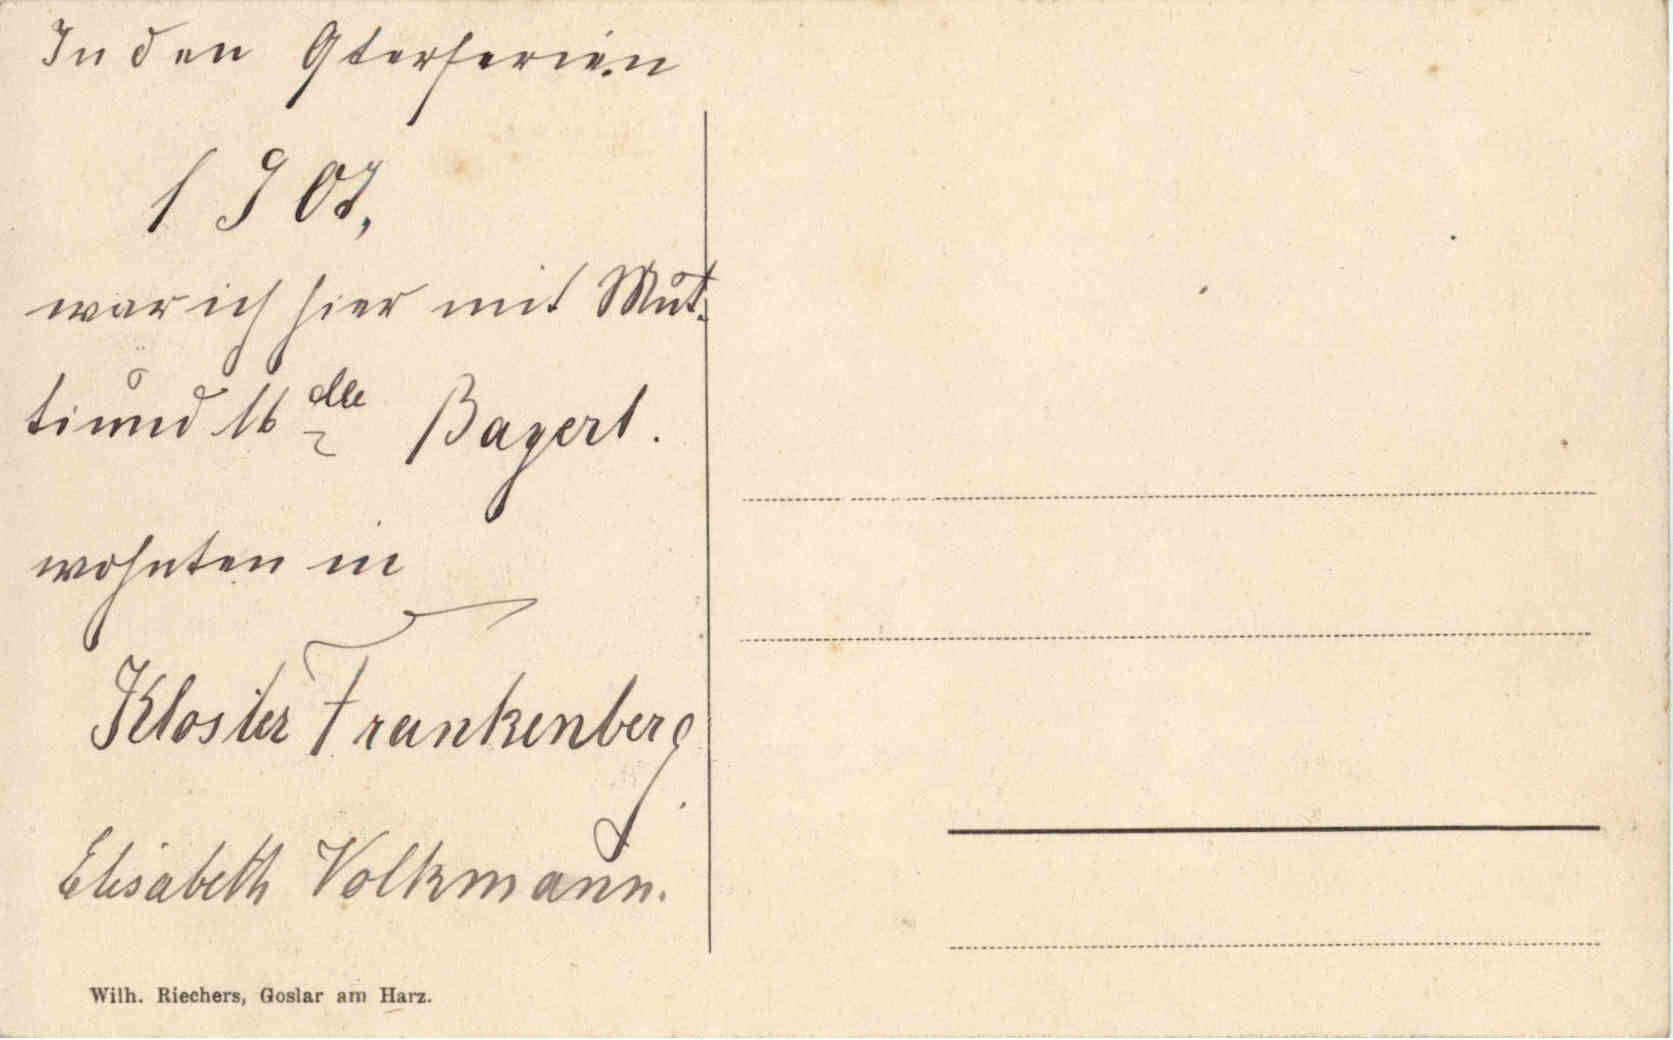 In den Osterferien
1907,
war ich hier mit Mut-
ti und Mdlle Bayert.
wohnten in
Kloster Frankenberg.
Elisabeth Volkmann.
Wilh. Riechers, Goslar am Harz.